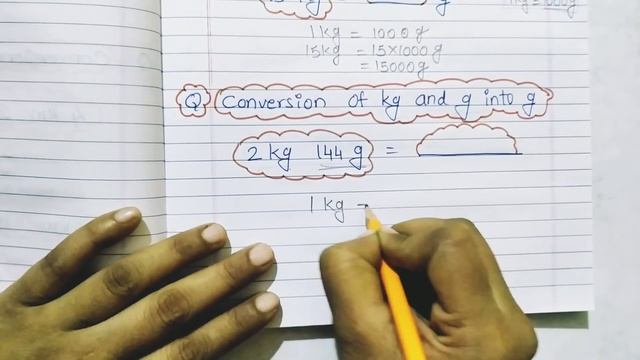 g
1kg = 1000g
1 kg = 1000 g
15 kg = 15 × 1000 g
= 15000 g
Q Conversion of kg and g into g
2 kg 144 g =
1 kg -